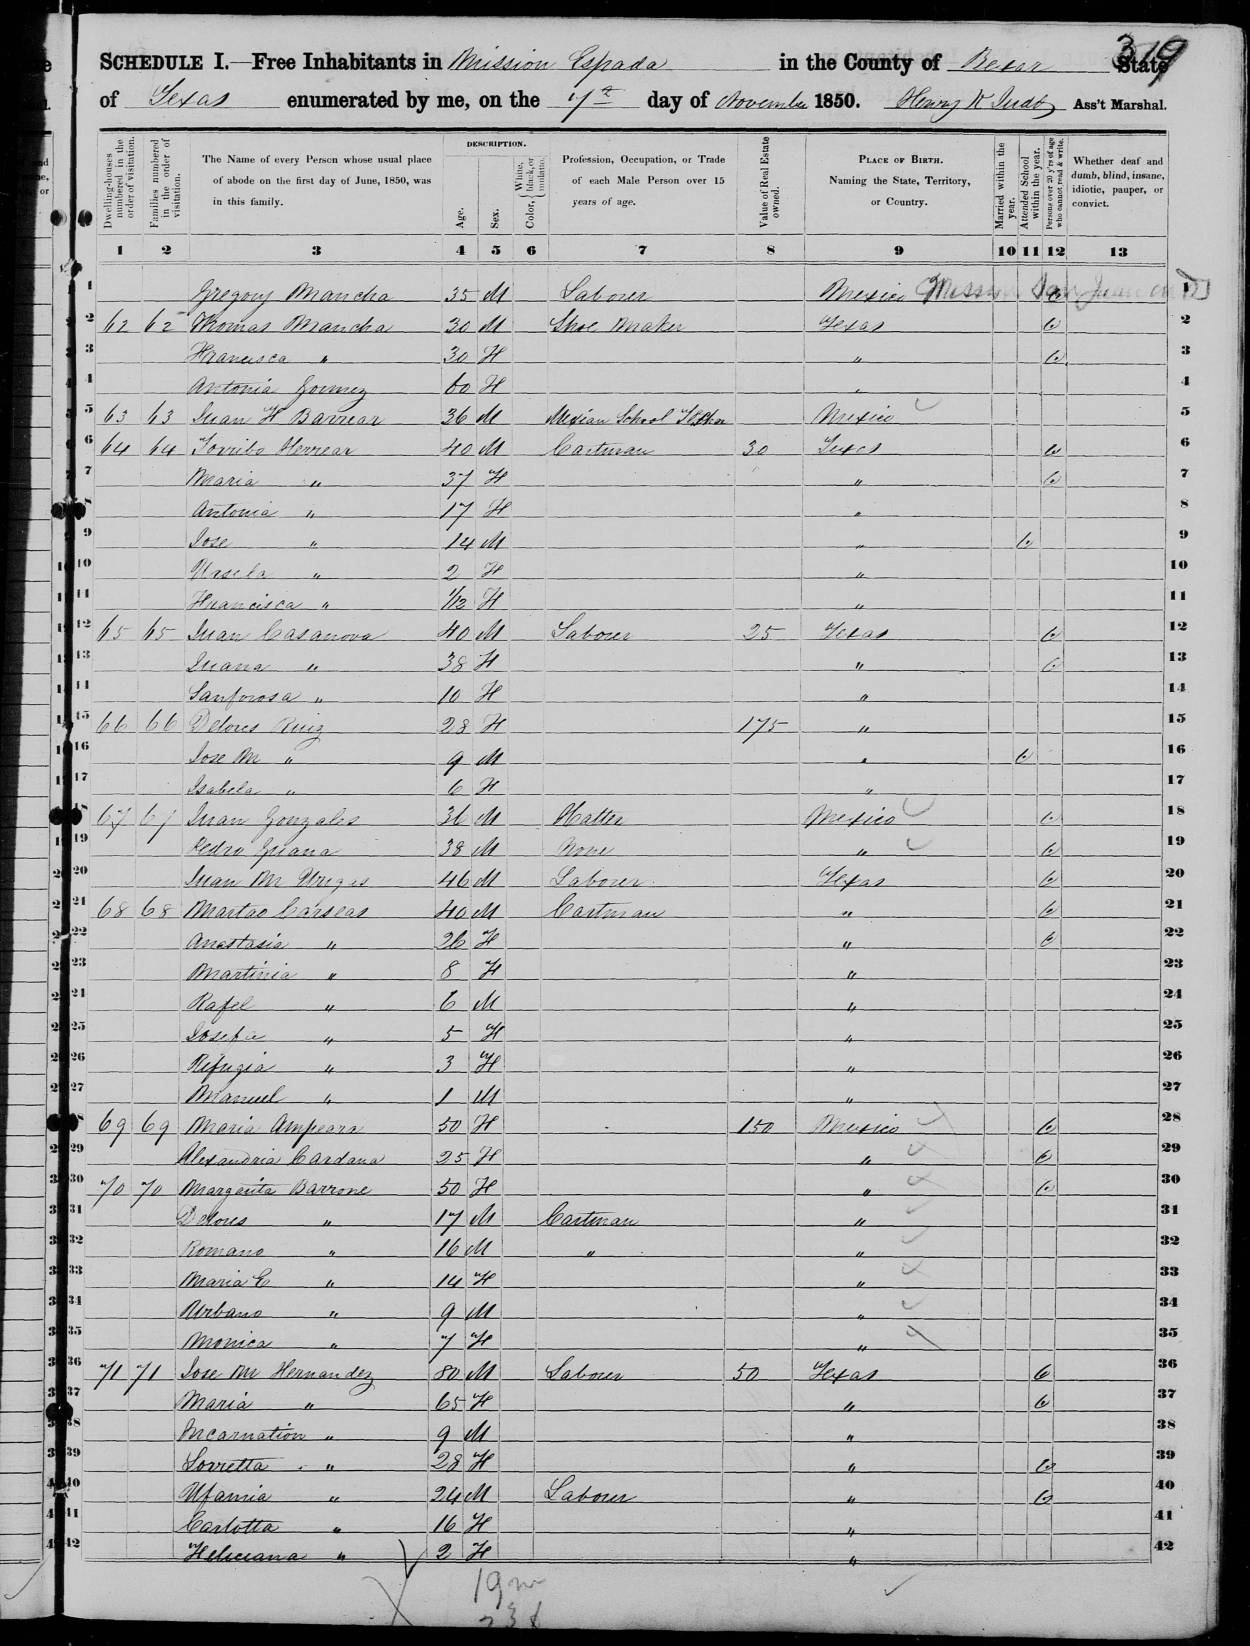 319
SCHEDULE I.—Free Inhabitants in Mission Espada in the County of Bexar State
of Texas enumerated by me, on the 7th day of November 1850. Henry K Judd Ass't Marshal.
Dwelling-houses numbered in the order of visitation.
Families numbered in the order of visitation.
The Name of every Person whose usual place of abode on the first day of June, 1850, was in this family.
DESCRIPTION.
Age.
Sex.
Color, { White, black, or mulatto.
Profession, Occupation, or Trade of each Male Person over 15 years of age.
Value of Real Estate owned.
PLACE OF BIRTH. Naming the State, Territory, or Country.
Married within the year.
Attended School within the year.
Persons over 20 y'rs of age who cannot read & write.
Whether deaf and dumb, blind, insane, idiotic, pauper, or convict.
1 2 3 4 5 6 7 8 9 10 11 12 13
1 Gregory Mancha 35 M Laborer Mexico Mission San Juan 1
2 62 62 Thomas Mancha 30 M Shoe Maker Texas 2
3 Francisca " 30 F " 3
4 Antonia Gomez 60 F " 4
5 63 63 Juan F Barrear 36 M Mexian School Mexico 5
6 64 64 Torribo Herrear 40 M Cartman 30 Texas 6
7 Maria " 37 F " 7
8 Antonia " 17 F " 8
9 Jose " 14 M " 9
10 Ursela " 2 F " 10
11 Francisca " 1/12 F " 11
12 65 65 Juan Casanova 40 M Laborer 25 Texas 12
13 Juana " 38 F " 13
14 Sanforosa " 10 F " 14
15 66 66 Delores Ruiz 28 F 175 " 15
16 Jose M " 9 M " 16
17 Isabela " 6 F " 17
18 67 67 Juan Gonzales 36 M Hatter Mexico 18
19 Pedro Guana 38 M None " 19
20 Juan M Uregas 46 M Laborer Texas 20
21 68 68 Martao Carseas 40 M Cartman " 21
22 Anastasia " 26 F " 22
23 Martinia " 8 F " 23
24 Rafel " 6 M " 24
25 Josefa " 5 F " 25
26 Rifugia " 3 F " 26
27 Manuel " 1 M " 27
28 69 69 Maria Ampeara 50 F 150 Mexico 28
29 Alexandria Cardana 25 F " 29
30 70 70 Margarita Barrone 50 F " 30
31 Delores " 17 M Cartman " 31
32 Romano " 16 M " " 32
33 Maria C " 14 F " 33
34 Urbano " 9 M " 34
35 Monica " 7 F " 35
36 71 71 Jose M Hernandez 80 M Laborer 50 Texas 36
37 Maria " 65 F " 37
38 Incarnation " 9 M " 38
39 Lorretta " 28 F " 39
40 Ufamia " 24 M Laborer " 40
41 Carlotta " 16 F " 41
42 Feliciana " 2 F " 42
19 m
23 f